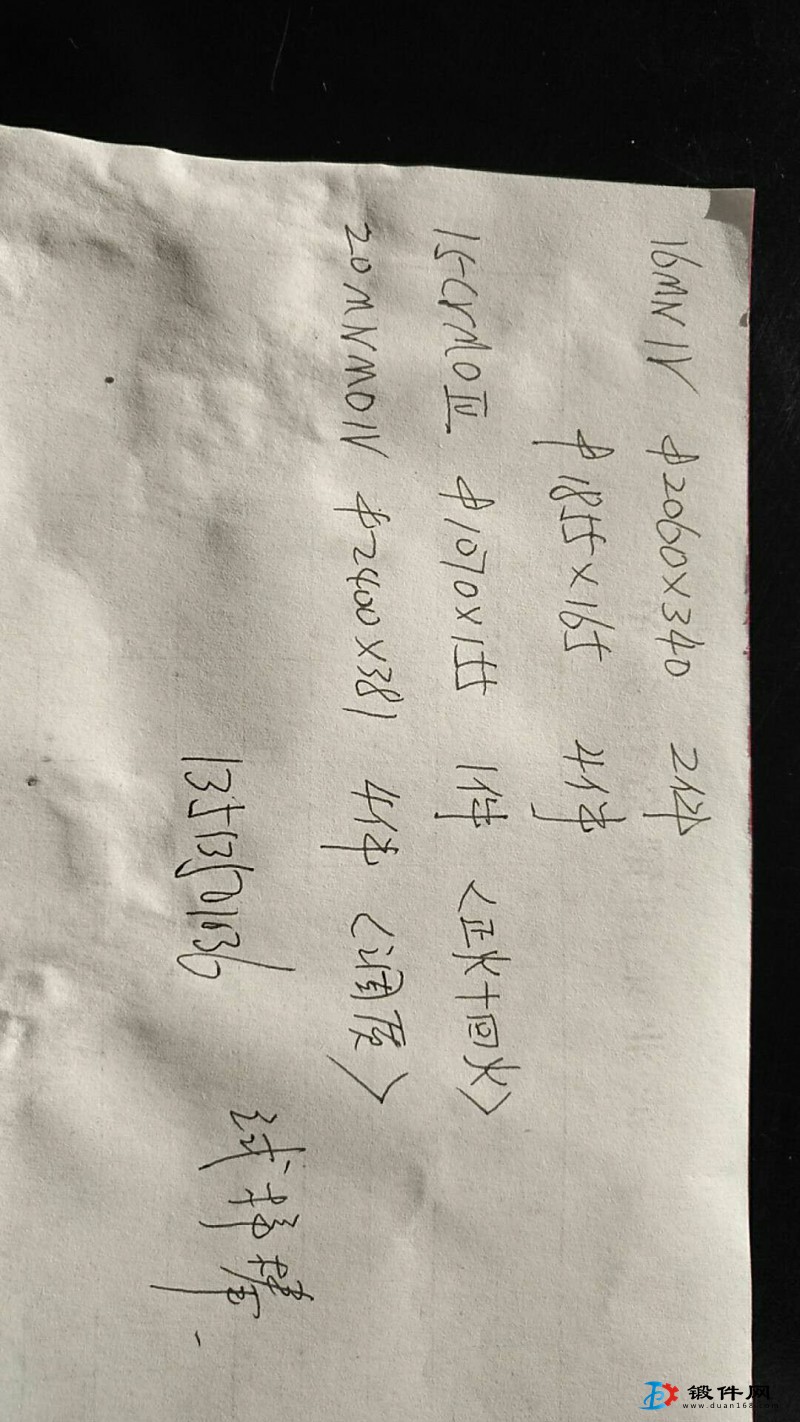 16MN IV ф2060×340 2件
ф1855×165 4件
15CrMO Ⅲ ф1070×155 1件 <正火+回火>
20MNMO IV ф2400×381 4件 <调质>
锻件网
www.duan168.com